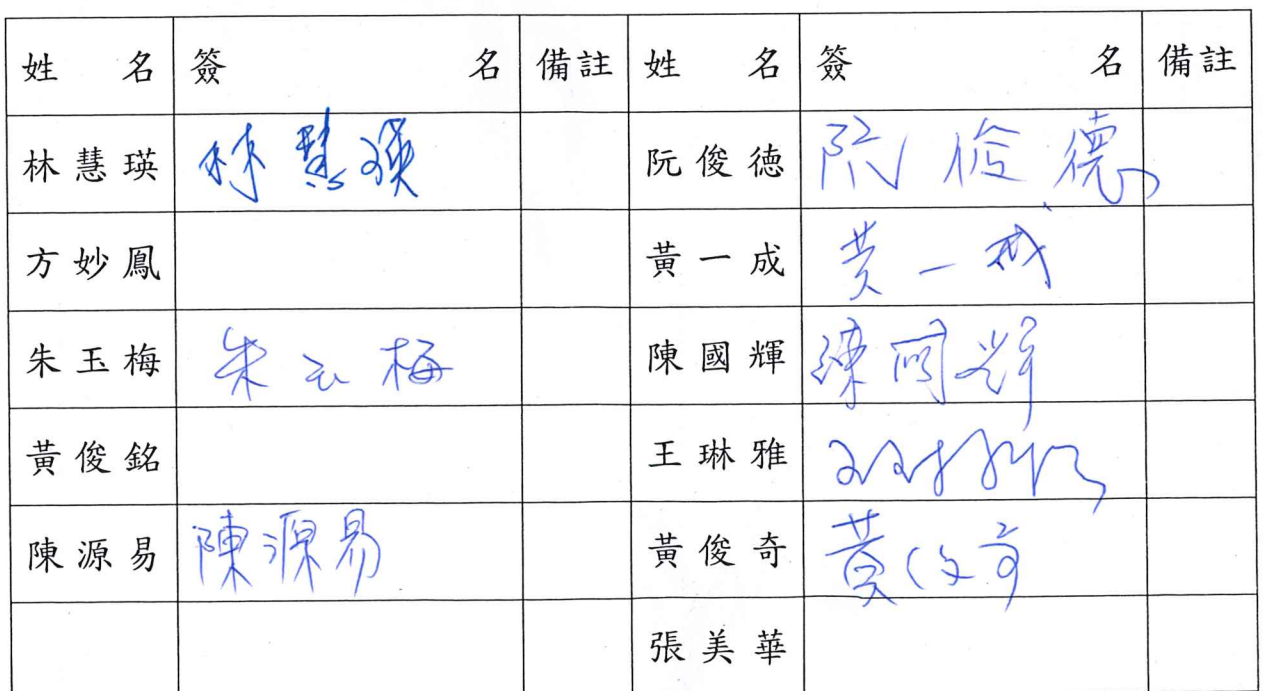 姓名 簽名 備註 姓名 簽名 備註
林慧瑛 林慧瑛 阮俊德 阮俊德
方妙鳳 黃一成 黃一成
朱玉梅 朱玉梅 陳國輝 陳國輝
黃俊銘 王琳雅 王琳雅
陳源易 陳源易 黃俊奇 黃俊奇
張美華